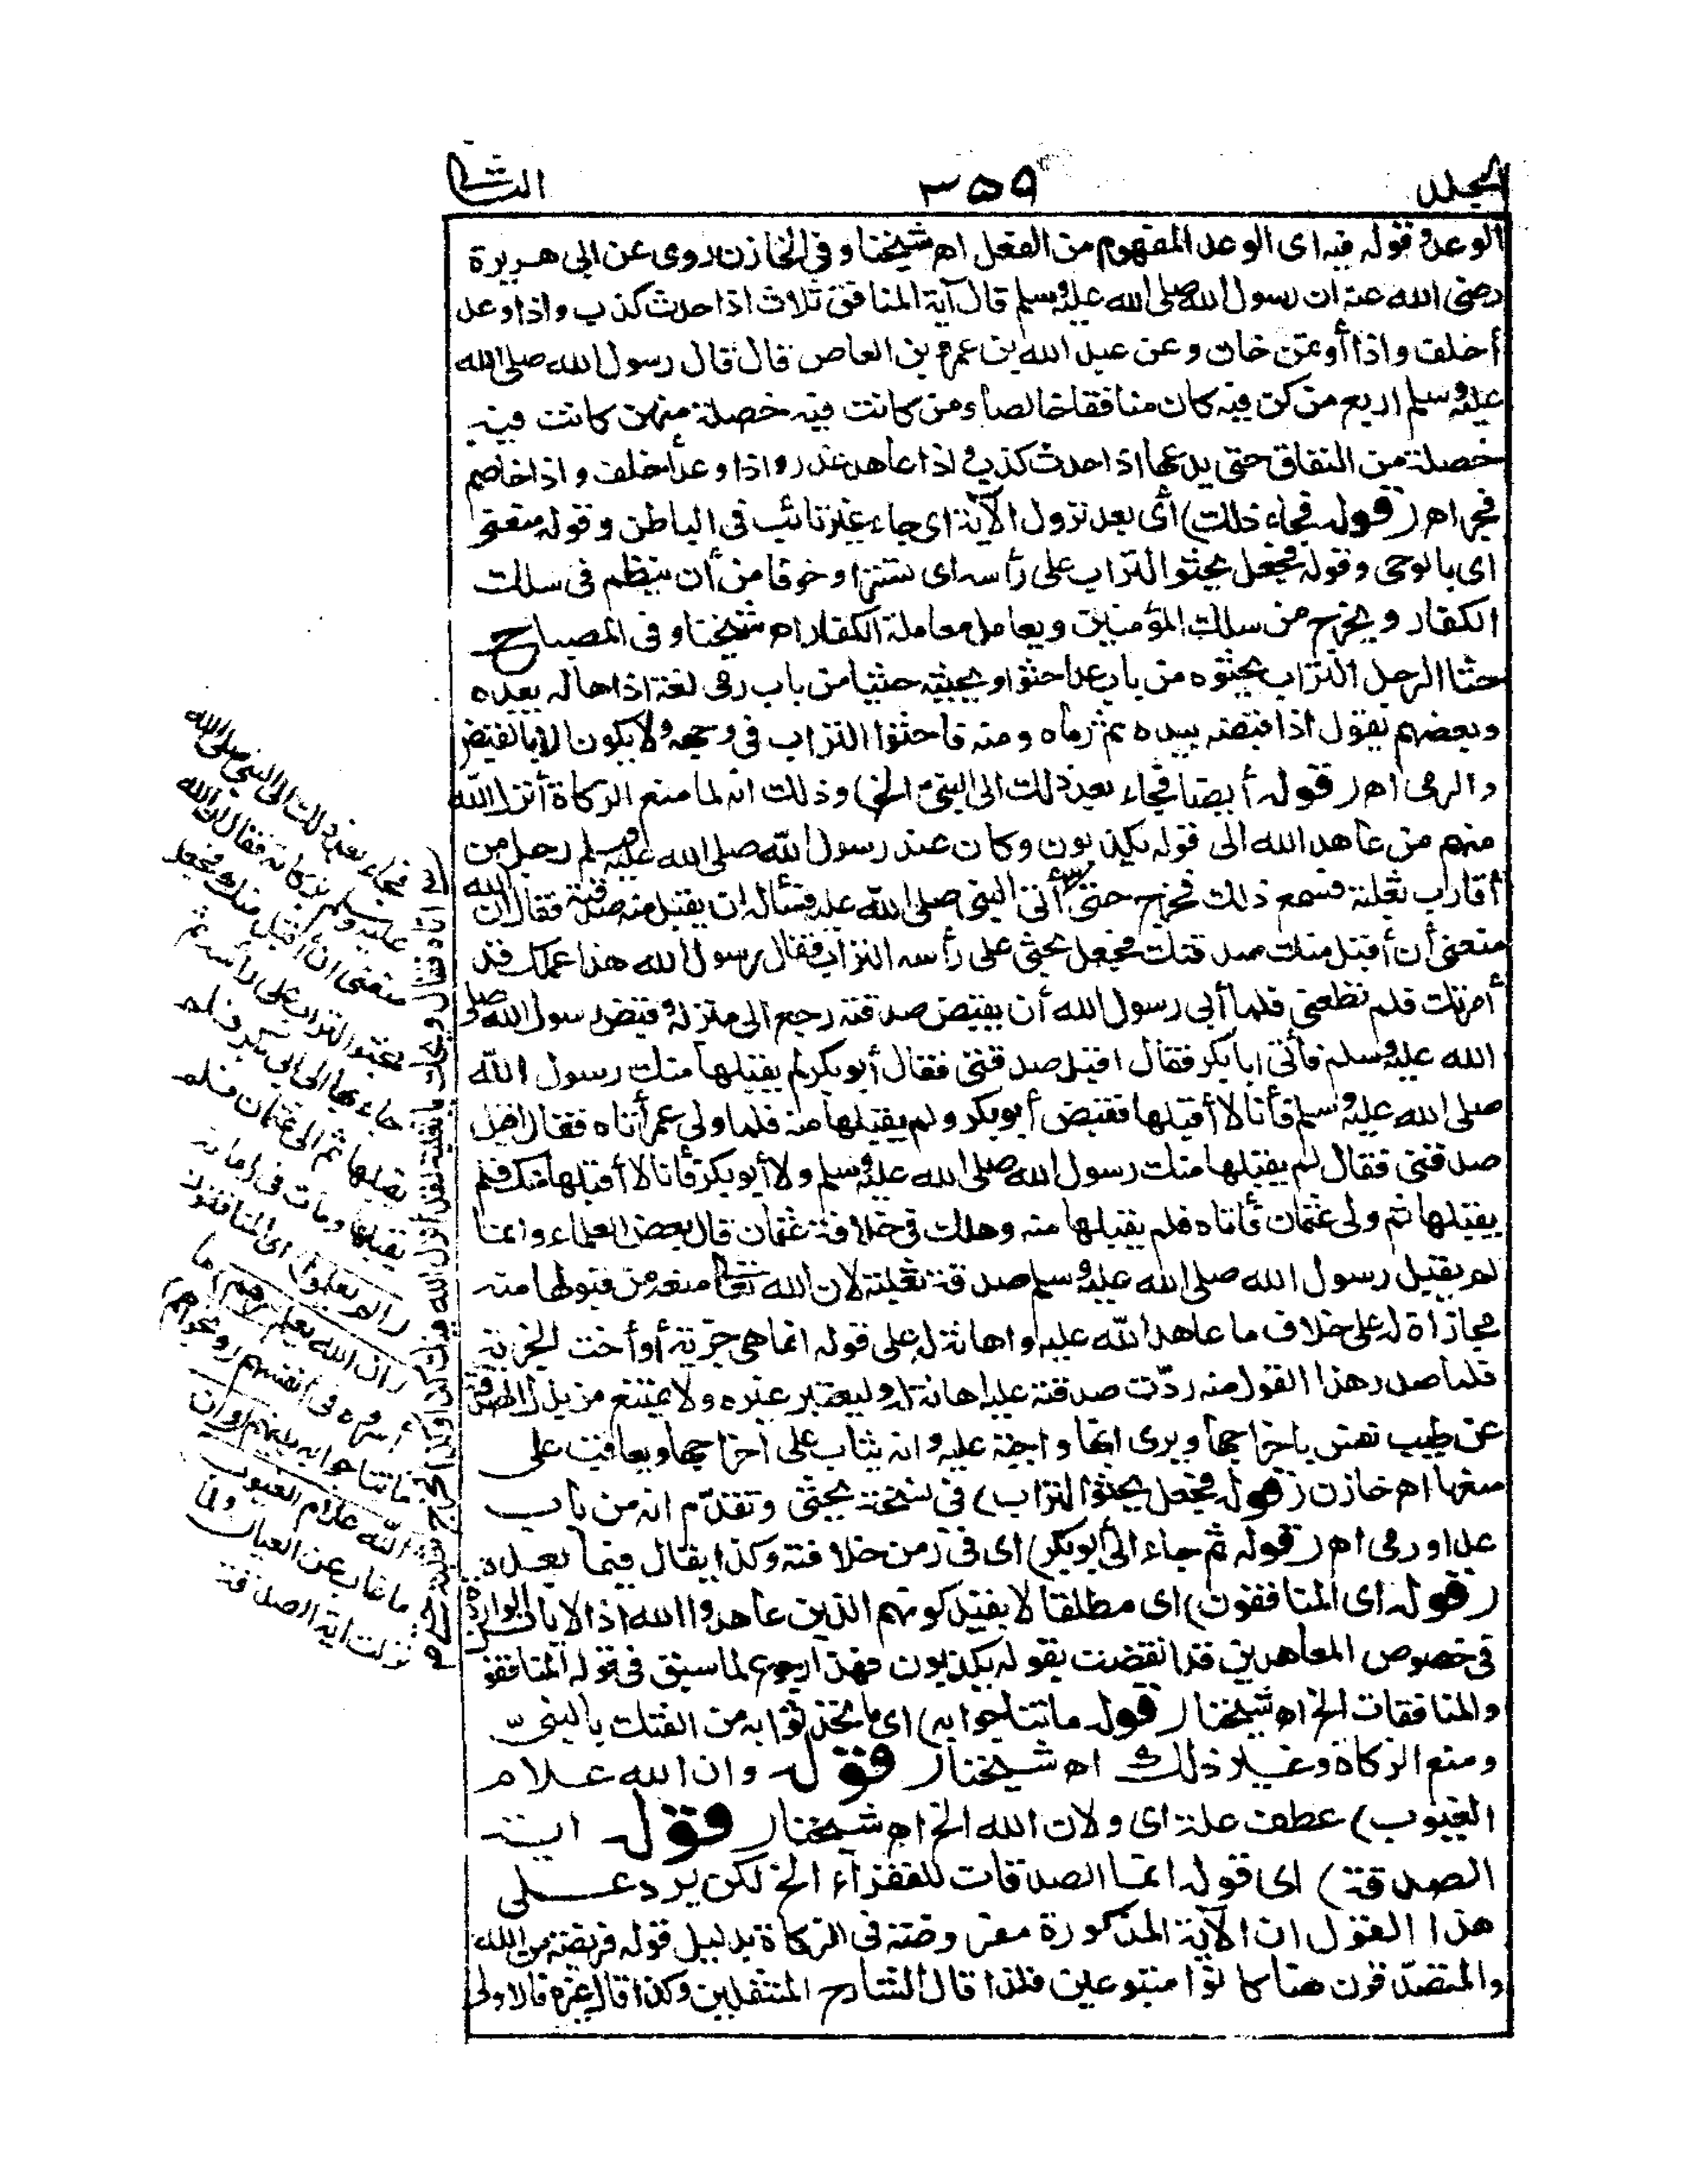 المجلد ٣٥٩ الثانى
الوعد وقوله فيه اى الوعد المفهوم من الفعل اه شيخنا وفى الخازن روى عن ابى هريرة
رضى الله عنه ان رسول الله صلى الله عليه وسلم قال آية المنافق ثلاث اذا حدث كذب واذا وعد
أخلف واذا أوتمن خان وعن عبد الله بن عمرو بن العاص قال قال رسول الله صلى الله
عليه وسلم اربع من كن فيه كان منافقا خالصا ومن كانت فيه خصلة منهن كانت فيه
خصلة من النفاق حتى يدعها اذا حدث كذب واذا عاهد غدر واذا وعد أخلف واذا خاصم
فجر اه (قوله فجاء ذلك) أى بعد نزول الآية اى جاء غير تائب فى الباطن وقوله منعنى
اى بالوحى وقوله فجعل يحثو التراب على رأسه اى تسترا وخوفا من أن ينظم فى سلك
الكفار ويخرج من سلك المؤمنين ويعامل معاملة الكفار اه شيخنا وفى المصباح
حثا الرجل التراب يحثوه من باب عدا حثوا ويحثيه حثيا من باب رمى لغة اذا هاله بيده
وبعضهم يقول اذا قبضه بيده ثم رماه ومنه فاحثوا التراب فى وجهه ولا يكون الا بالقبض
والرمى اه (قوله أيضا فجاء بعد ذلك الى النبى الخ) وذلك انه لما منع الزكاة أنزل الله
منهم من عاهد الله الى قوله يكذبون وكان عند رسول الله صلى الله عليه وسلم رجل من
أقارب ثعلبة فسمع ذلك فخرج حتى أتى النبى صلى الله عليه فسأله ان يقبل منه صدقته فقال ان الله
منعنى أن أقبل منك صدقتك فجعل يحثى على رأسه التراب فقال رسول الله هذا عملك قد
أمرتك فلم تطعنى فلما أبى رسول الله أن يقبض صدقته رجع الى منزله وقبض رسول الله صلى
الله عليه وسلم فأتى ابا بكر فقال اقبل صدقتى فقال أبو بكر لم يقبلها منك رسول الله
صلى الله عليه وسلم فأنا لا أقبلها فقبض أبو بكر ولم يقبلها منه فلما ولى عمر أتاه فقال اقبل
صدقتى فقال لم يقبلها منك رسول الله صلى الله عليه وسلم ولا أبو بكر فأنا لا أقبلها منك فلم
يقبلها ثم ولى عثمان فأتاه فلم يقبلها منه وهلك فى خلافة عثمان قال بعض العلماء وانما
لم يقبل رسول الله صلى الله عليه وسلم صدقة ثعلبة لان الله تعالى منعه من قبولها منه
مجازاة له على خلاف ما عاهد الله عليه واهانة له على قوله انما هى جزية أو أخت الجزية
فلما صدر هذا القول منه ردت صدقته عليه اهانة له وليعتبر غيره ولا يمتنع من بذل الصدقة
عن طيب نفس باخراجها ويرى انها واجبة عليه وانه يثاب على اخراجها ويعاقب على
منعها اه خازن (قوله فجعل يحثو التراب) فى نسخة يحثى وتقدم انه من باب
عدا ورمى اه (قوله ثم جاء الى أبو بكر) اى فى زمن خلافته وكذا يقال فيما بعده
(قوله اى المنافقون) اى مطلقا لا بقيد كونهم الذين عاهدوا الله اذ الآيات الواردة
فى خصوص المعاهدين قد انقضت بقوله يكذبون فهذا رجوع لما سبق فى قوله المنافقو
والمنافقات الخ اه شيخنا (قوله ما تناجوا به) اى ما تحدثوا به من الفتك بالنبى
ومنع الزكاة وغير ذلك اه شيخنا (قوله وان الله علام
الغيوب) عطف علة اى ولان الله الخ اه شيخنا (قوله اية
الصدقة) اى قوله انما الصدقات للفقراء الخ لكن يرد على
هذا القول ان الآية المذكورة مفروضة فى الزكاة بدليل قوله فريضة من الله
والمتصدقون هنا كانوا متبوعين فلذا قال الشارح المتنفلين وكذا قال غيره فالاولى
فجاء بعد ذلك الى النبى صلى الله
عليه وسلم بزكاته فقال ان الله
منعنى ان اقبل منك فجعل
يحثو التراب على رأسه ثم
جاء بها الى ابى بكر فلم
يقبلها ثم الى عثمان فلم
يقبلها ومات فى زمانه
(الم يعلموا) اى المنافقون
(ان الله يعلم سرهم) ما
أسروه فى انفسهم (ونجواهم)
ما تناجوا به بينهم (وان
الله علام الغيوب)
ما غاب عن العيان ولما
نزلت اية الصدقة